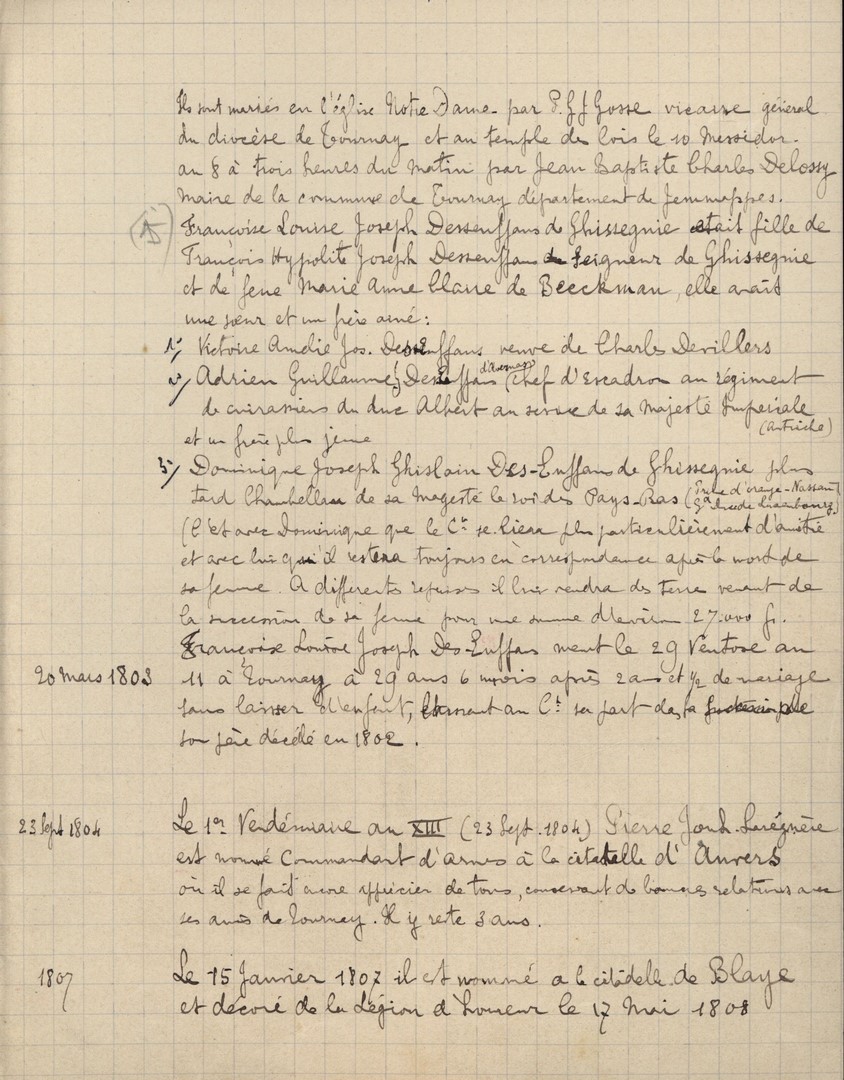 Ils sont mariés en l'église Notre Dame par P. G J Gosse vicaire général
du diocèse de Tournay et au temple des lois le 10 Messidor
an 8 à trois heures du matin par Jean Baptiste Charles Delossy
maire de la commune de Tournay département de Jemmappes.
Françoise Louise Joseph Dessenffans de Ghissegnie était fille de
François Hypolite Joseph Dessenffans Seigneur de Ghissegnie
et de feue Marie Anne Claire de Beeckman, elle avait
une sœur et un frère ainé :
1°) Victoire Amélie Jos. Desenffans veuve de Charles Devillers
2°) Adrien Guillaume J Desenffans (chef d'Escadron au régiment
de cuirassiers du duc Albert au service de sa Majesté Impériale
(Autriche)
et un frère plus jeune
3°) Dominique Joseph Ghislain Des-Enffans de Ghissegnie plus
tard Chambellan de sa Magesté le roi des Pays-Bas (Prince d'orange-Nassau
Gd duc de Luxembourg)
(C'est avec Dominique que le Ct se liera plus particulièrement d'amitié
et avec lui qu'il restera toujours en correspondance après la mort de
sa femme. A différentes reprises il lui vendra des terres venant de
la succession de sa femme pour une somme d'environ 27.000 f.
Françoise Louise Joseph Des-Enffans meurt le 29 Ventose an
20 mars 1803 11 à Tournay à 29 ans 6 mois après 2 ans et 1/2 de mariage
sans laisser d'enfant, laissant au Ct sa part de la
son père décédé en 1802.
23 Sept 1804 Le 1er Vendémiaire an XIII (23 Sept. 1804) Pierre
est nommé Commandant d'armes à la citatelle d'Anvers
où il se fait encore apprécier de tous, conservant de bonnes relations avec
ses amis de Tournay. Il y reste 3 ans.
1807 Le 15 Janvier 1807 il est nommé a la citadelle de Blaye
et décoré de la Légion d'honneur le 17 Mai 1808